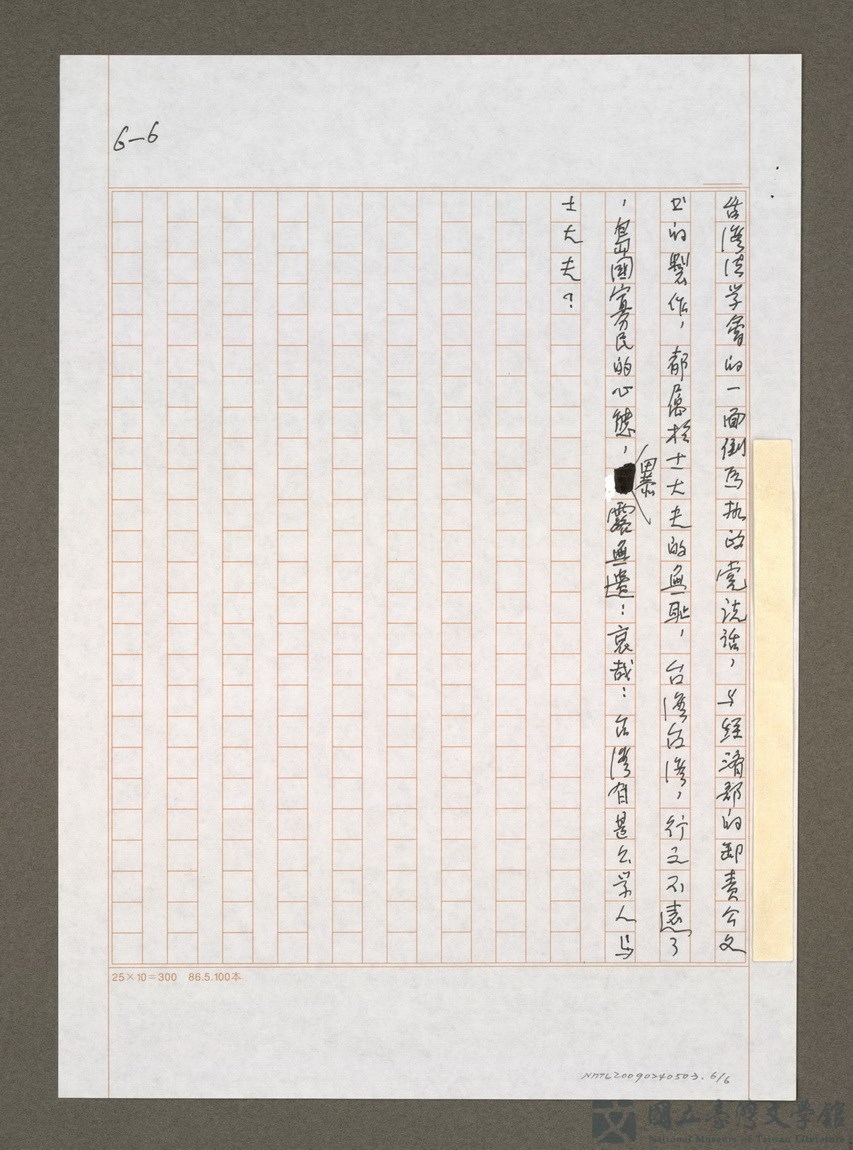 6-6
台湾法学會的一面倒為执政党说话，与経済部的卸责公文
书的製作，都属於士大夫的無耻，台湾台湾，行之不遠了
，島國寡民的心態，暴露無遺！哀哉！台湾有甚么学人与
士大夫？
25×10=300 86.5.100本
NMTL20090240503.6/6
國立臺灣文學館
National Museum of Taiwan Literature